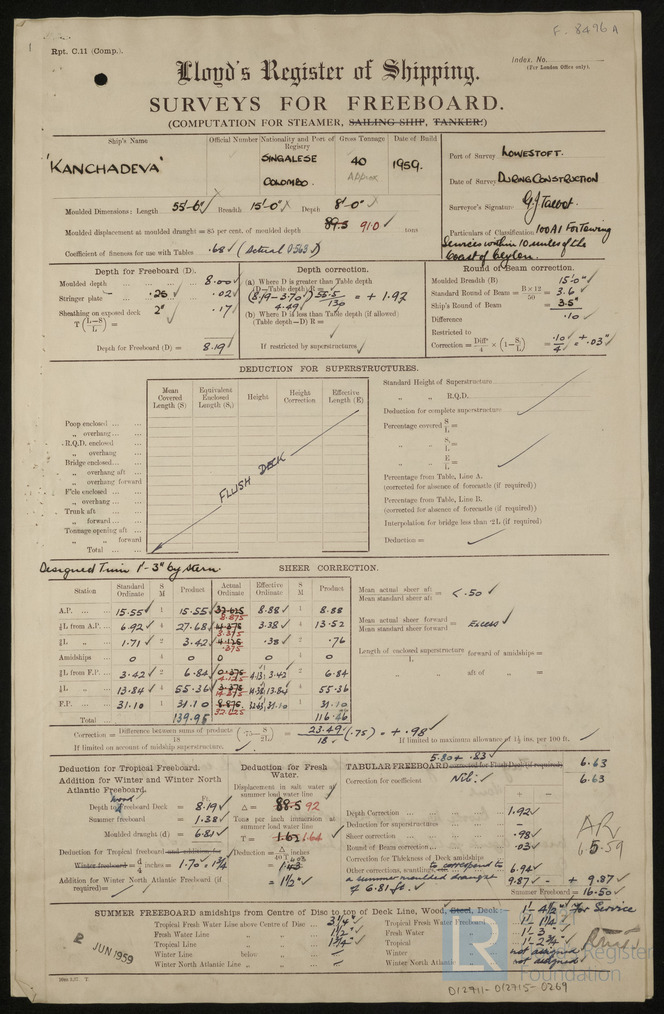 F. 8496A
Rpt. C.11 (Comp.).
Index. No.
(For London Office only).
Lloyd's Register of Shipping.
SURVEYS FOR FREEBOARD.
(COMPUTATION FOR STEAMER, SAILING SHIP, TANKER.)
Ship's Name Official Number Nationality and Port of Registry Gross Tonnage Date of Build
'KANCHADEVA' SINGALESE COLOMBO. 40 APPROX 1959.
Port of Survey LOWESTOFT.
Date of Survey DURING CONSTRUCTION
Surveyor's Signature G J Talbot.
Particulars of Classification 100A1 For Towing
Services within 10 miles of the
Coast of Ceylon.
Moulded Dimensions: Length 55'-6" Breadth 15'-0" Depth 8'-0"
Moulded displacement at moulded draught = 85 per cent. of moulded depth 89.5 91.0 tons
Coefficient of fineness for use with Tables .68 (Actual 0.563)
Depth for Freeboard (D).
Moulded depth 8.00
Stringer plate .25 .02
Sheathing on exposed deck 2" .17
T (L-S/L) =
Depth for Freeboard (D) = 8.19
Depth correction.
(a) Where D is greater than Table depth
(D-Table depth) R =
(8.19 - 3.70) 55.5/130 = + 1.92
4.49
(b) Where D is less than Table depth (if allowed)
(Table depth-D) R =
If restricted by superstructures
Round of Beam correction.
Moulded Breadth (B) 15'-0"
Standard Round of Beam = B×12/50 = 3.6
Ship's Round of Beam = 3.5"
Difference .10
Restricted to
Correction = Diffce/4 × (1-S₁/L) = .10/4 = + .03"
DEDUCTION FOR SUPERSTRUCTURES.
Mean Covered Length (S) Equivalent Enclosed Length (S₁) Height Height Correction Effective Length (E)
Poop enclosed
„ overhang
R.Q.D. enclosed
„ overhang
Bridge enclosed
„ overhang aft
„ overhang forward
F'cle enclosed
„ overhang
Trunk aft
„ forward
Tonnage opening aft
„ „ forward
Total
FLUSH DECK
Standard Height of Superstructure
„ „ R.Q.D.
Deduction for complete superstructure
Percentage covered S/L =
„ „ S₁/L =
„ „ E/L =
Percentage from Table, Line A.
(corrected for absence of forecastle (if required))
Percentage from Table, Line B.
(corrected for absence of forecastle (if required))
Interpolation for bridge less than ·2L (if required)
Deduction =
Designed Trim 1'-3" by stern. SHEER CORRECTION.
Station Standard Ordinate S M Product Actual Ordinate Effective Ordinate S M Product
A.P. 15.55 1 15.55 8.875 8.88 1 8.88
⅙L from A.P. 6.92 4 27.68 3.375 3.38 4 13.52
⅓L „ 1.71 2 3.42 .375 .38 2 .76
Amidships 0 4 0 0 0 4 0
⅓L from F.P. 3.42 2 6.84 4.125 4.13 3.42 2 6.84
⅙L „ 13.84 4 55.36 14.375 14.38 13.84 4 55.36
F.P. 31.10 1 31.10 32.625 31.10 1 31.10
Total 139.95 116.46
Mean actual sheer aft / Mean standard sheer aft = < .50
Mean actual sheer forward / Mean standard sheer forward = Excess
Length of enclosed superstructure / L forward of amidships =
„ aft of „ =
Correction = Difference between sums of products / 18 (·75 - S/2L) = 23.49/18 (.75) = + .98
If limited on account of midship superstructure.
If limited to maximum allowance of 1½ ins. per 100 ft.
Deduction for Tropical Freeboard.
Addition for Winter and Winter North
Atlantic Freeboard.
Ft.
Depth to Wood Freeboard Deck = 8.19
Summer freeboard = 1.38
Moulded draught (d) = 6.81
Deduction for Tropical freeboard and addition for
Winter freeboard = d/4 inches = 1.70 = 1¾
Addition for Winter North Atlantic Freeboard (if
required) =
Deduction for Fresh
Water.
Displacement in salt water at
summer load water line
Δ = 88.5 92
Tons per inch immersion at
summer load water line
T = 1.64
Deduction = Δ/40T inches
= 1½"
TABULAR FREEBOARD corrected for Flush Deck (if required) 5.80 + .83 6.63
Correction for coefficient Nil. 6.63
+ -
Depth Correction 1.92
Deduction for superstructures -
Sheer correction .98
Round of Beam correction .03
Correction for Thickness of Deck amidships -
Other corrections, scantlings, etc. to correspond to 6.94
a summer moulded draught
of 6.81 ft.
9.87 - + 9.87
Summer Freeboard = 16.50
6.5.59
SUMMER FREEBOARD amidships from Centre of Disc to top of Deck Line, Wood, Steel, Deck:- 1'-4½" for Service
Tropical Fresh Water Line above Centre of Disc 3¼"
Fresh Water Line „ 1½"
Tropical Line „ 1¾"
Winter Line below „ -
Winter North Atlantic Line „ „ -
Tropical Fresh Water Freeboard 1'-1¼"
Fresh Water „ 1'-3"
Tropical „ 1'-2¾"
Winter „ not assigned
Winter North Atlantic „ not assigned
2 JUN 1959
LR
Lloyd's Register
Foundation
D12911-D12915-0269